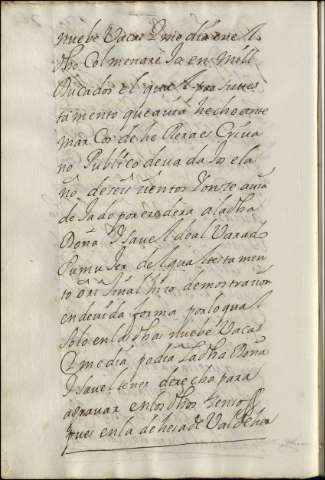 nuebe Vacas Y media en el
dho Colmenarejo en mill
Ducados el qual por su tes
tamento que avia hecho ante
marcos de herrera escriva
no Publico de vadajoz el a
ño de seis cientos Y onze avia
dejado por eredera a la dha
Doña Ysavel de alvarado
su mujer del qual testamen
to Original hizo demostracion
en devida forma por lo qual
solo en las dhas nuebe Vacas
Y media podia la dha Doña
Ysavel tener derecho para
agravar en los dhos
pues en la dehesa de Valde